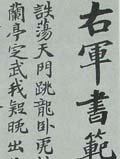 右軍書範
詄蕩天門跳龍卧虎
蘭亭定武我疑晚出